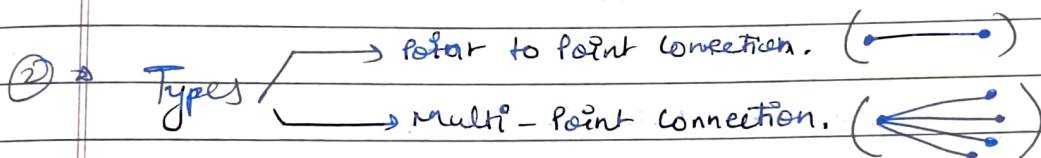 ② → Types → Potar to Point Connection.
→ Multi - Point Connection.